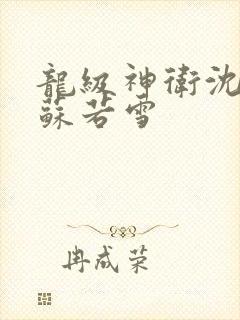 龍級神衛沈
蘇若雪
冉成荣